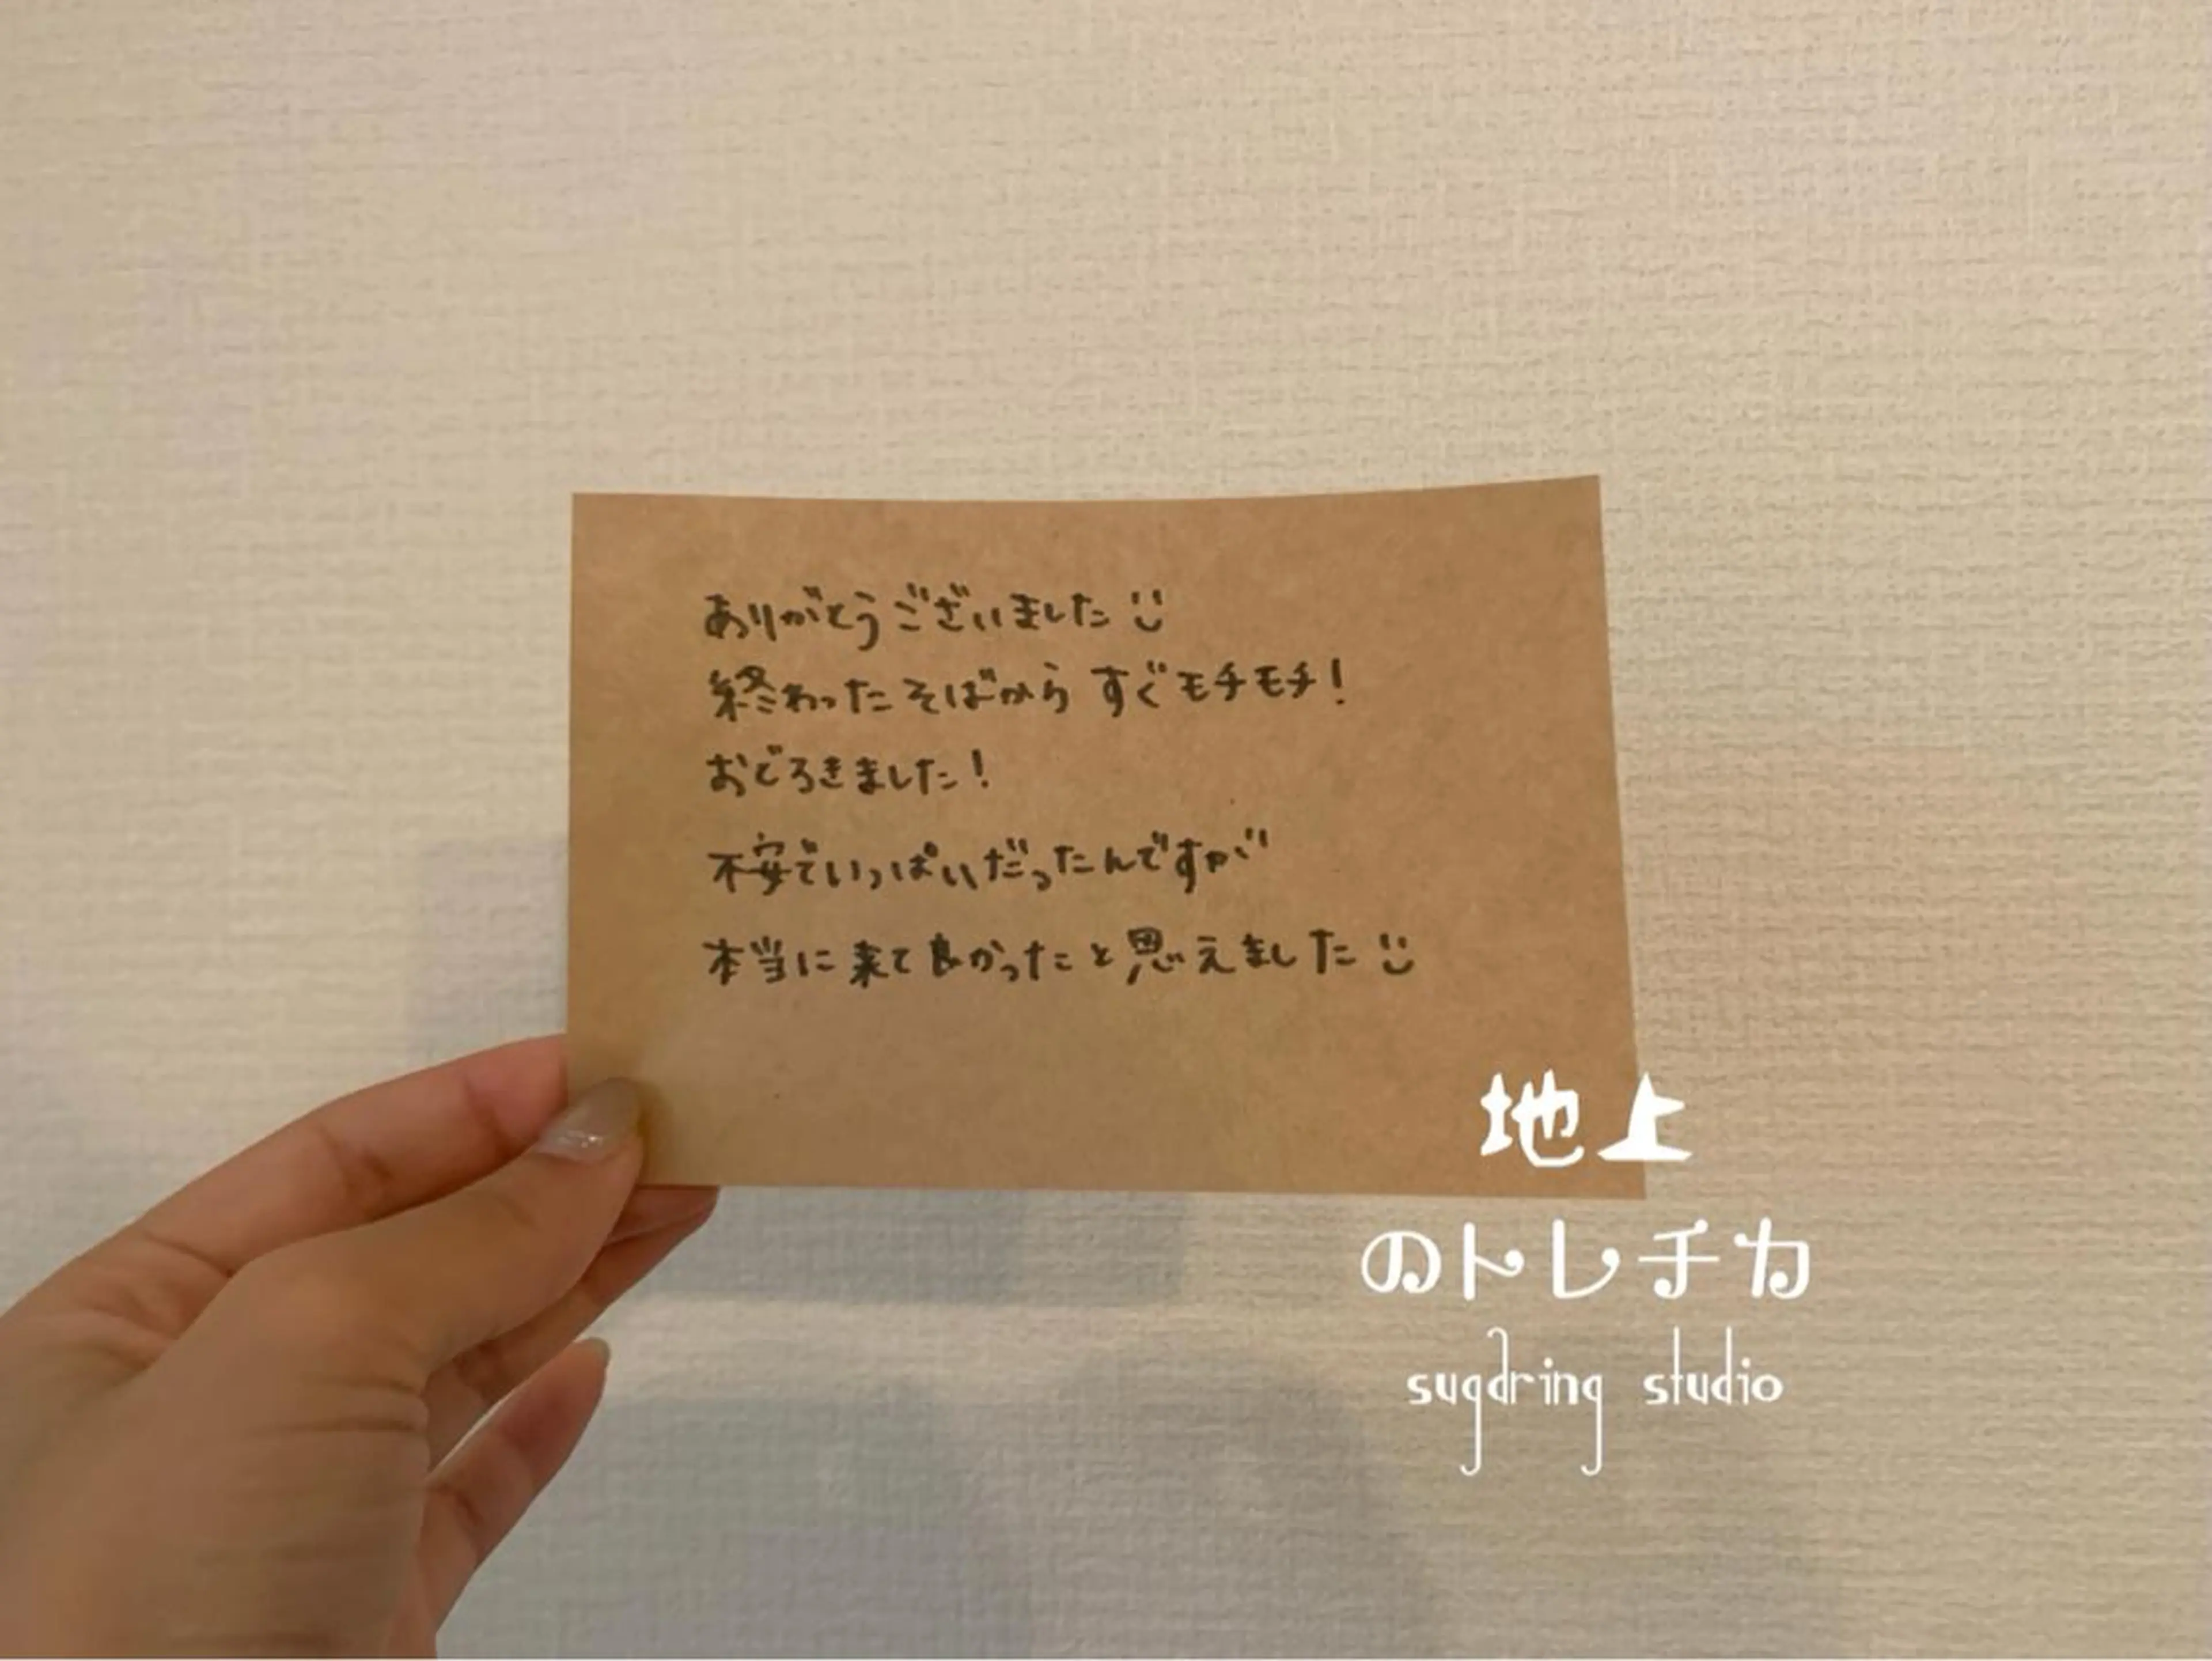 ありがとうございました
終わったそばから すぐモチモチ!
おどろきました!
不安でいっぱいだったんですが
本当に来て良かったと思えました
地上
のトレチカ
sugdring studio